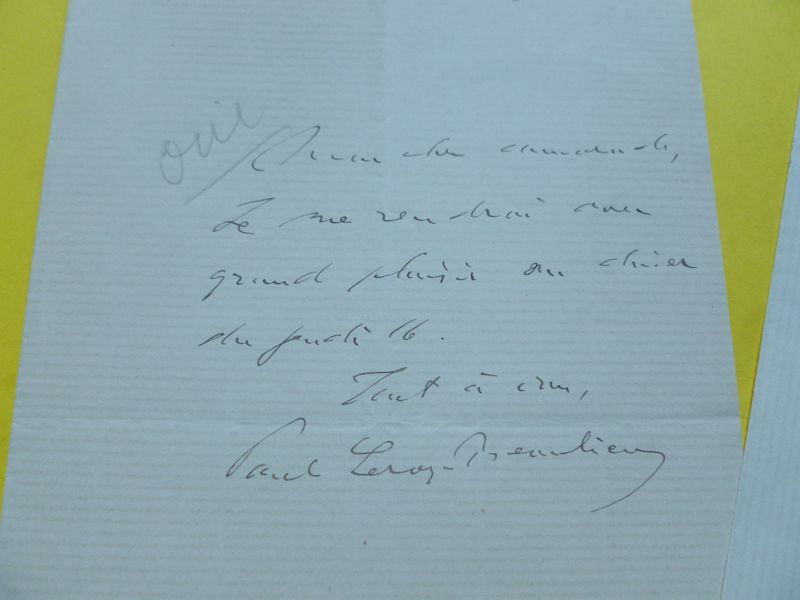 oui
Mon cher camarade,
Je me rendrai avec
grand plaisir au dîner
du jeudi 16.
Tout à vous,
Paul Leroy-Beaulieu